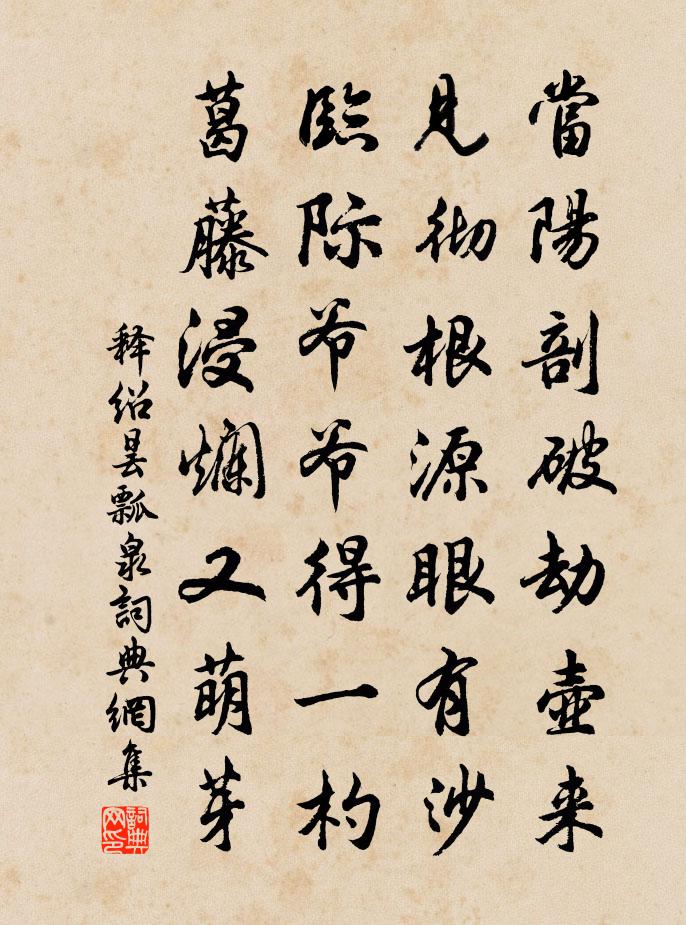 當陽剖破劫壺来
見彻根源眼有沙
臨际爷爷得一杓
葛藤浸爛又萌芽
释绍昙瓢泉詞典網集
詞典网印